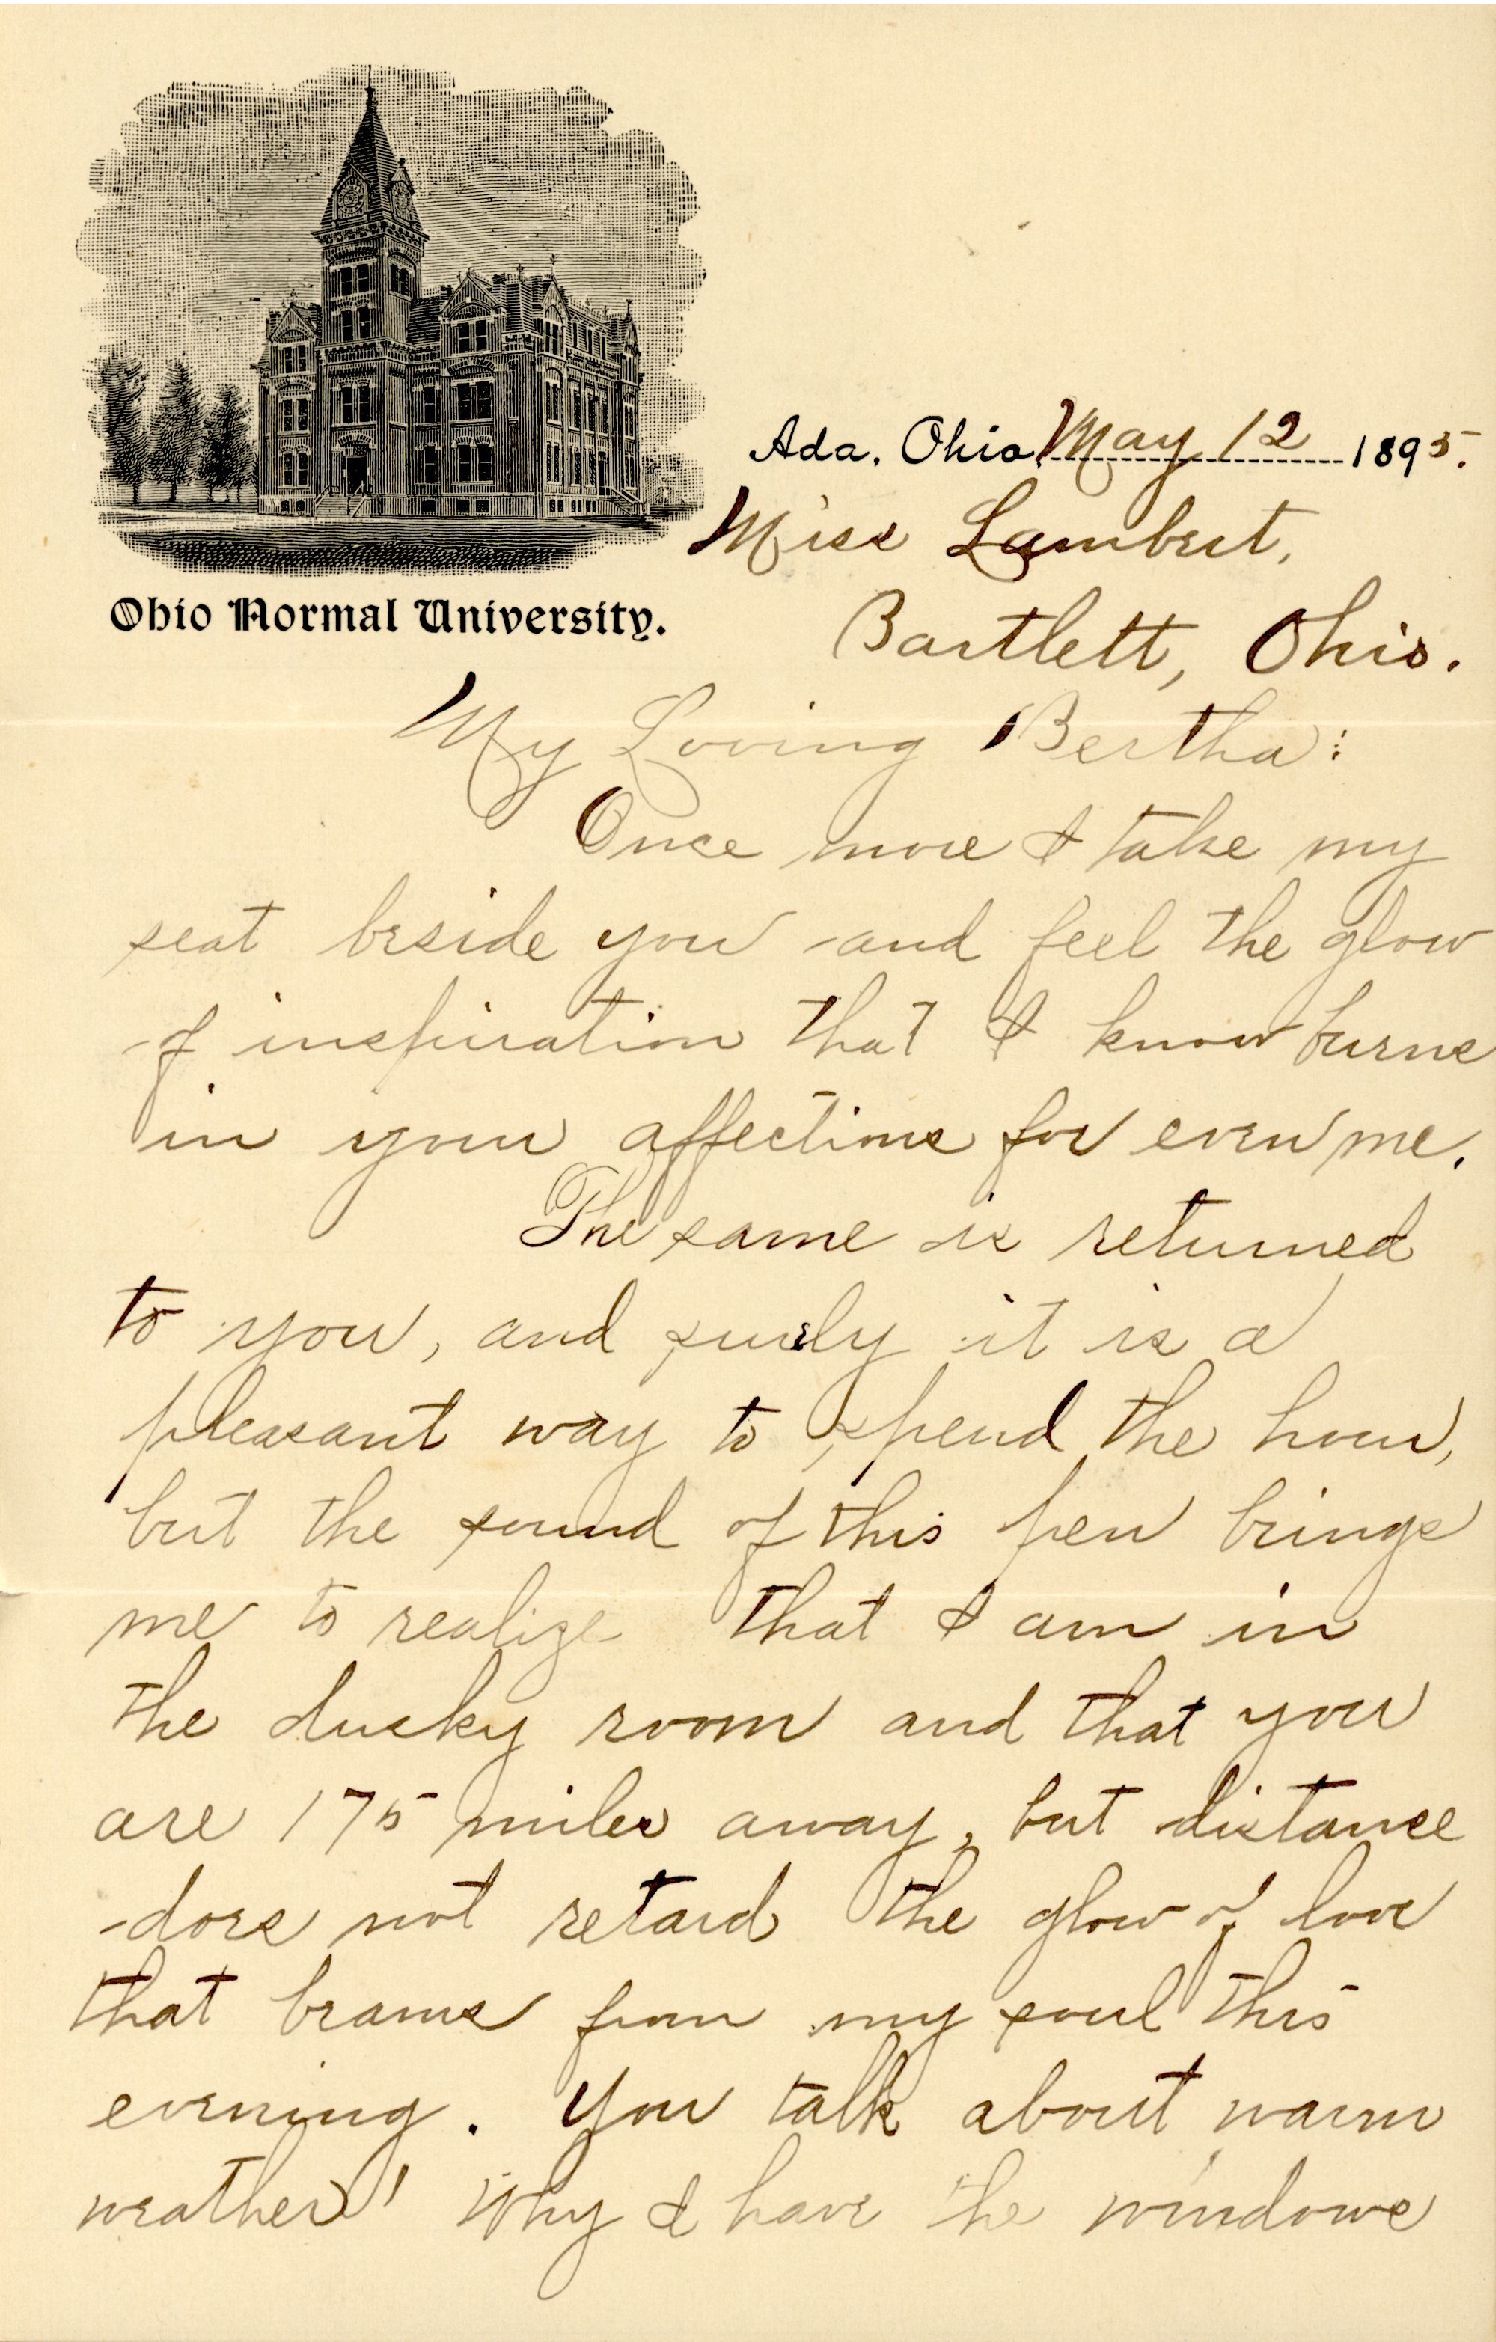 Ada, Ohio, May 12 1895.
Ohio Normal University.
Miss Lambert,
Bartlett, Ohio.
My Loving Bertha:
Once more I take my
seat beside you and feel the glow
of inspiration that I know burns
in your affections for even me.
The same is returned
to you, and surely it is a
pleasant way to spend the hour,
but the sound of this pen brings
me to realize that I am in
the dusky room and that you
are 175 miles away, but distance
does not retard the glow of love
that beams from my soul this
evening. You talk about warm
weather! Why I have the windows